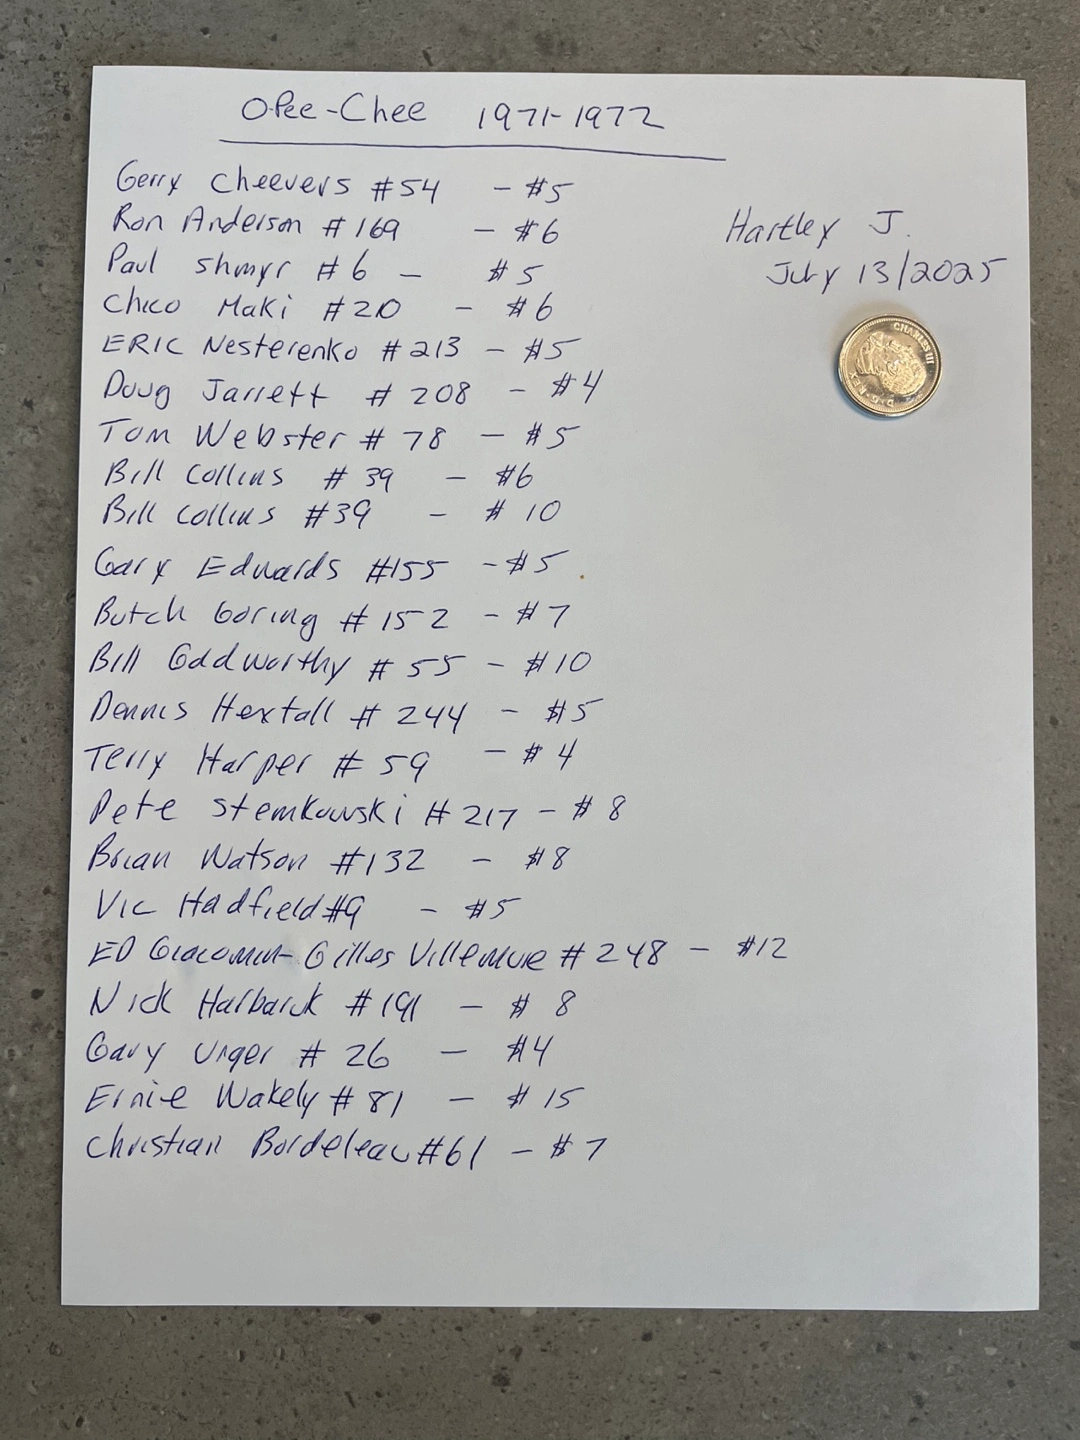 O-Pee-Chee 1971-1972
Gerry Cheevers #54 - $5
Ron Anderson #169 - $6
Paul Shmyr #6 - $5
Chico Maki #210 - $6
ERIC Nesterenko #213 - $5
Doug Jarrett #208 - $4
Tom Webster #78 - $5
Bill Collins #39 - $6
Bill Collins #39 - $10
Gary Edwards #155 - $5
Butch Goring #152 - $7
Bill Goldworthy #55 - $10
Dennis Hextall #244 - $5
Terry Harper #59 - $4
Pete Stemkowski #217 - $8
Brian Watson #132 - $8
Vic Hadfield #9 - $5
ED Giacomin-Gilles Villemure #248 - $12
Nick Harbaruk #191 - $8
Gary Unger #26 - $4
Ernie Wakely #81 - $15
Christian Bordeleau #61 - $7
Hartley J.
July 13/2025
CHARLES III
D·G·REX